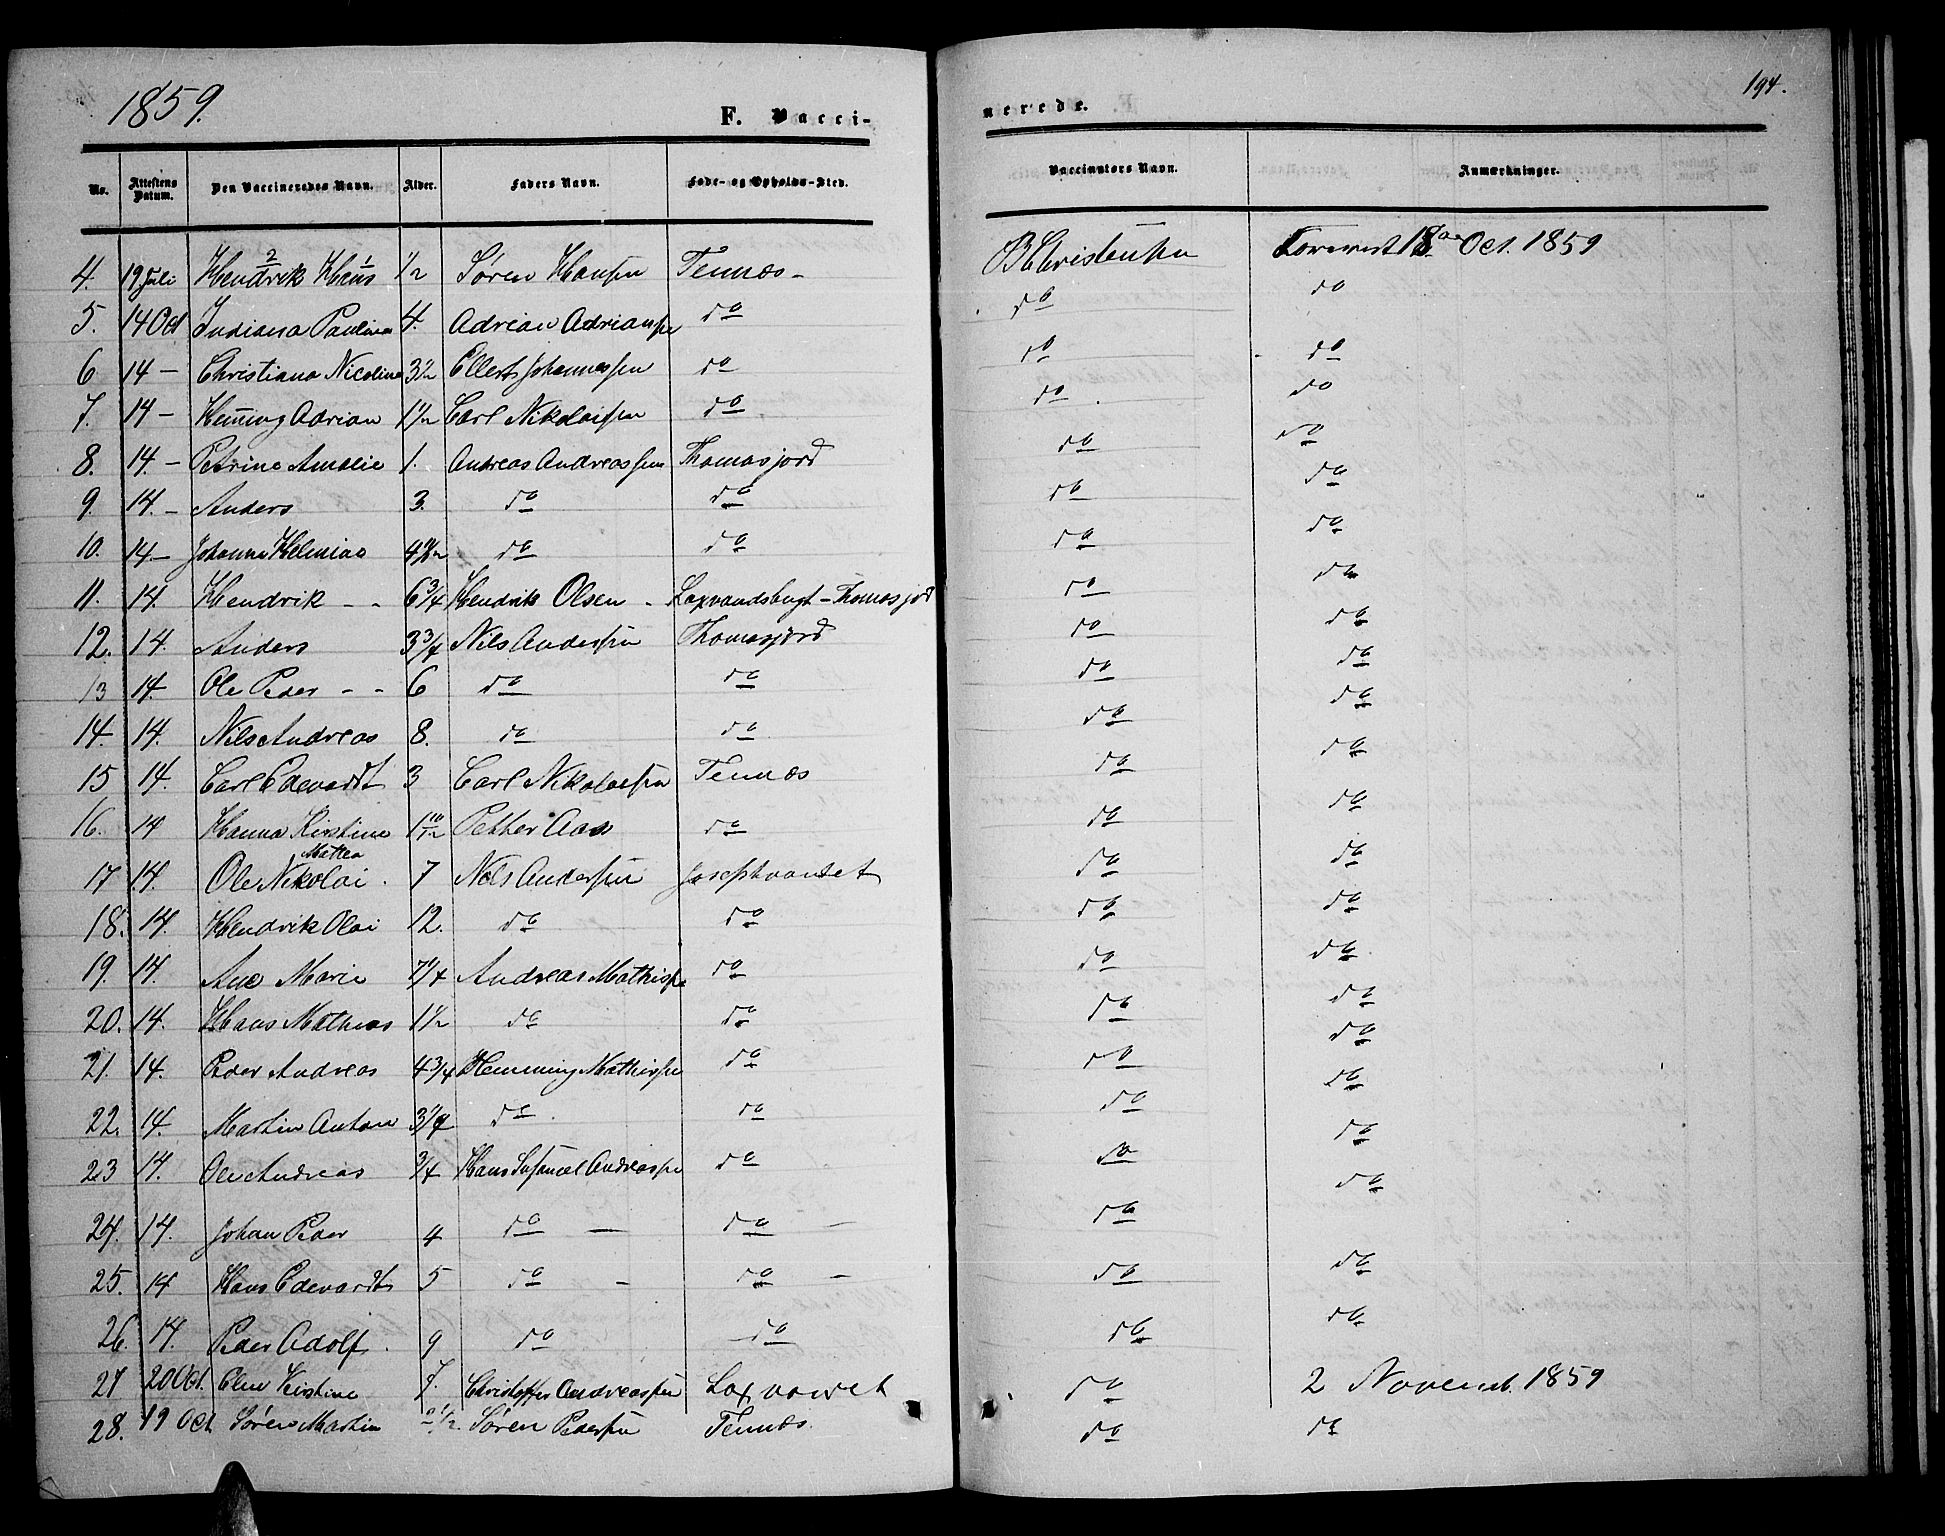 1859.
F. Vacci-
nerede.
194.
No. Attestens Datum. Den Vaccineredes Navn. Alder. Faders Navn. Føde- og Opholds-Sted. Vaccinators Navn. Anmærkninger.
4. 19 Juli Hendrik Hans 2 1 1/2 Søren Hansen Tennæs - B Christensen 18 Oct. 1859
5. 14 Oct Indiana Paulina 4. Adrian Adriansen do do do
6 14 - Christiana Nicoline 3 1/2 Ellert Johannessen do do do
7. 14 - Henning Adrian 1 1/2 Carl Nikolaisen do do do
8. 14. - Petrine Amalie 1. Andreas Andreassen Thomasjord do do
9. 14. - Anders 3. do do do do
10. 14 - Johanna do do do do
11. 14. Hendrik - - 6 3/4 Hendrik Olsen - Laxvandsbugt - Thomasjord do do
12. 14. Anders 3 3/4 Nils Andersen Thomasjord do do
13 14. Ole Peder - - 6 do do do do
14. 14. Nils Andreas 8. do do do do
15 14. Carl Edevardt 3 Carl Nikolaisen Tennæs do do
16. 14 Hanna Kirstine Mattea 1 10/12 Petter Aas do do do
17 14. Ole Nikolai. 7 Nels Andersen Josephvandet do do
18. 14. Hendrik Olai 12. do do do do
19. 14. Ane Marie 7 1/4 Andreas Mathisen do do do
20. 14. Hans Mathias 1 1/2 do do do do
21. 14. Peder Andreas 4 3/4 Hemming Mathisen do do do
22. 14. Martin Anton do do do do
23 14. Ole Andreas 3/4 Hans Andreassen do do do
24. 14. Johan Peder 4 do - do - do do
25. 14 Hans Edevardt 5 do - do - do do
26. 14. Peder Adolf. 9 do do do do
27 20 Oct. Eline Kirstine 7. Christoffer Andreassen Laxvandet do 2 Novemb. 1859
28. 19 Oct Søren Martin 2 1/2. Søren Pedersen Tennæs. do do